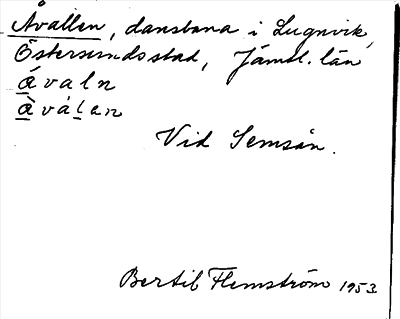 Åvallen, dansbana i Lugnvik,
Östersunds stad, Jämtl. län
ǻvaln
å̀và̀len
Vid Semsån.
Bertil Flemström 1953